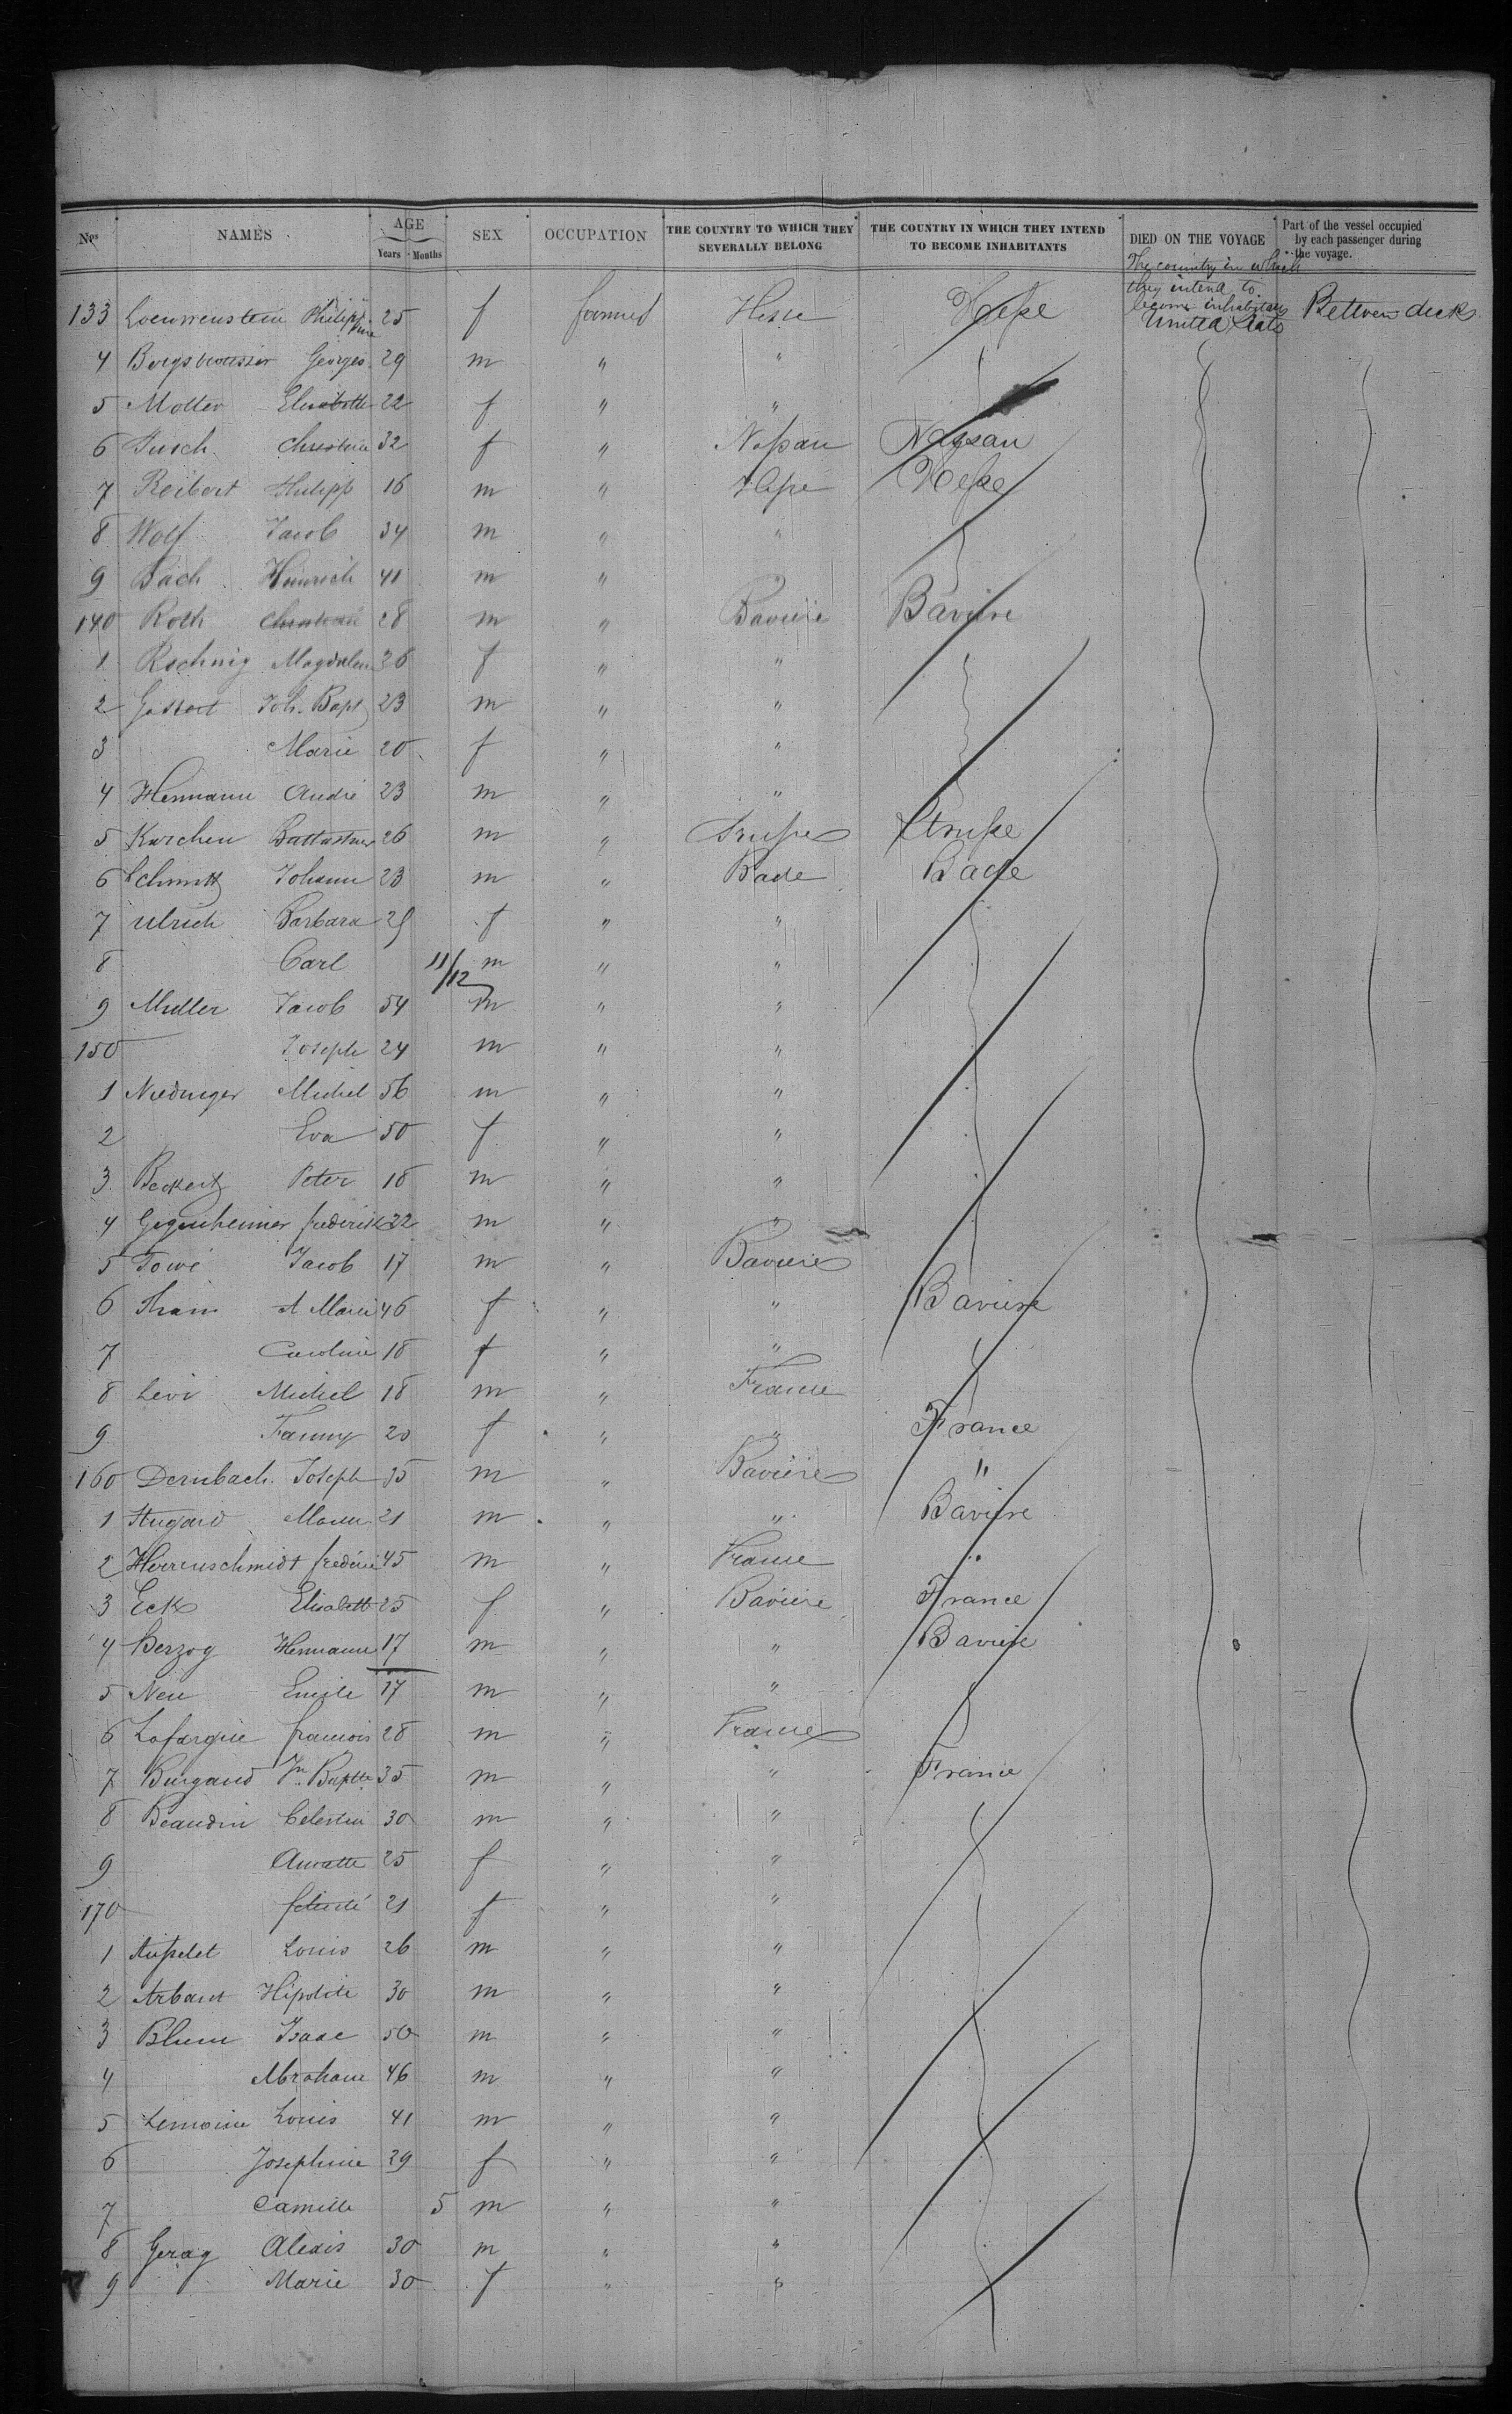 Nos NAMES AGE Years Months SEX OCCUPATION THE COUNTRY TO WHICH THEY SEVERALLY BELONG THE COUNTRY IN WHICH THEY INTEND TO BECOME INHABITANTS DIED ON THE VOYAGE Part of the vessel occupied by each passenger during the voyage.
The country in which they intend to become inhabitans
133 Philippine 25 f Hesse Hesse United Stats Between decks
4 Georges 29 m " "
5 Motter Elisabeth 22 f " "
6 Christine 32 f " Nassau Nassau
7 Reibert Philipp 16 m " Hesse Hesse
8 Wolf Jacob 34 m " "
9 Bach Heinrich 41 m "
140 Roth Christian 28 m " Baviere Baviere
1 Rechnig Magdalen 26 f " "
2 Joh. Bapt 23 m " "
3 Marie 20 f " "
4 Hermann André 23 m " "
5 Karcher 26 m " Prusse Prusse
6 Schmitt Johann 23 m " Bade Bade
7 Ulrich Barbara 25 f " "
8 Carl 11/12 m " "
9 Muller Jacob 54 m " "
150 Joseph 24 m " "
1 Michel 56 m " "
2 Eva 50 f " "
3 Beckert Peter 18 m " "
4 Gegenheimer frederik 22 m " "
5 Jacob 17 m " Baviere
6 A Marie 46 f " " Baviere
7 Caroline 18 f " "
8 Levi Michel 18 m " France
9 Fanny 20 f " " France
160 Dernbach Joseph 35 m " Baviere "
1 21 m " " Baviere
2 Herrenschmidt frederic 45 m " France "
3 Eck Elisabeth 25 f " Baviere France
4 Herzog Hermann 17 m " " Baviere
5 Neu Emile 17 m " "
6 Lafargue francois 28 m " France
7 Burgaud Jn Baptte 35 m " " France
8 Beaudin Celestin 30 m " "
9 Annette 25 f " "
170 felicité 21 f " "
1 Louis 26 m " "
2 Hipolite 30 m " "
3 Blum Isaac 50 m " "
4 Abraham 46 m " "
5 Lemoine Louis 41 m " "
6 Josephine 39 f " "
7 Camille 5 m " "
8 Alexis 30 m " "
9 Marie 30 f " "